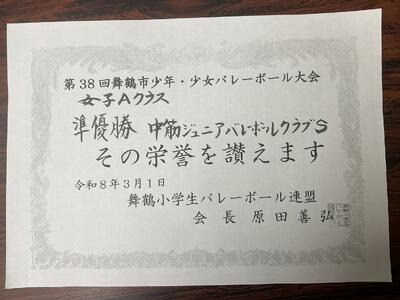 第38回舞鶴市少年・少女バレーボール大会
女子Aクラス
準優勝 中筋ジュニアバレーボールクラブS
その栄誉を讃えます
令和8年3月1日
舞鶴小学生バレーボール連盟
会長 原田善弘